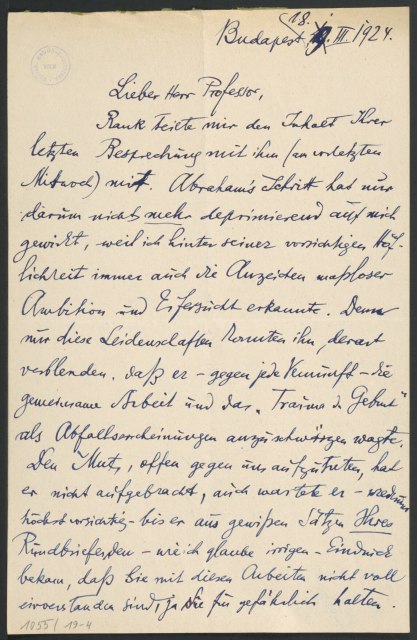 18.
Budapest, III. 1924.
Lieber Herr Professor,
Rank teilte mir den Inhalt Ihrer
letzten Besprechung mit ihm (am vorletzten
Mittwoch) mit. Abraham's Schritt hat nur
darum nicht mehr deprimierend auf mich
gewirkt, weil ich hinter seiner vorsichtigen Höf-
lichkeit immer auch die Anzeichen maßloser
Ambition und Eifersucht erkannte. Denn
nur diese Leidenschaften konnten ihn derart
verblenden, daß er – gegen jede Vernunft – die
gemeinsame Arbeit und das „Trauma d. Geburt"
als Abfallserscheinungen anzuschwärzen wagte.
Den Mut, offen gegen uns aufzutreten, hat
er nicht aufgebracht, auch wartete er – wiederum
höchst vorsichtig – bis er aus gewißen Sätzen Ihres
Rundbriefes den – wie ich glaube irrigen – Eindruck
bekam, daß Sie mit diesen Arbeiten nicht voll
einverstanden sind, ja Sie für gefährlich halten.
1055/19-4